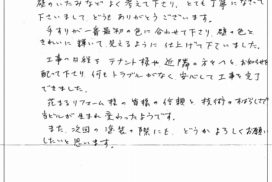 壁のいたみなどよく考えて下さり、とても丁寧になさって
下さいまして、どうもありがとうございます。
手すりが一番最初の色に合わせて下さり、壁の色と
きれいに輝いて見えるように仕上げて下さいました。
工事の日程もテナント様や近隣の方々へもお知らせを
配って下さり何もトラブルがなく、安心して工事を完了
できました。
花まるリフォーム様の皆様の信頼と技術のすばらしさで
当ビルが生まれ変わったようです。
また、次回の塗装の際にも、どうかよろしくお願い
したいと思います。